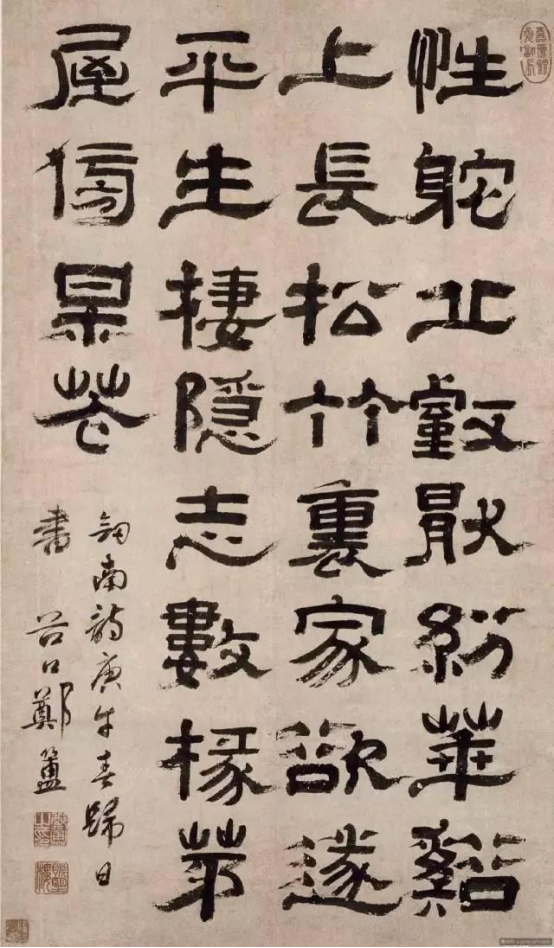 性躭丘壑厭紛華谿
上長松竹裏家欲遂
平生棲隱志數椽茅
屋傍呆花
劍南詩庚午春歸日
書 谷口鄭簠